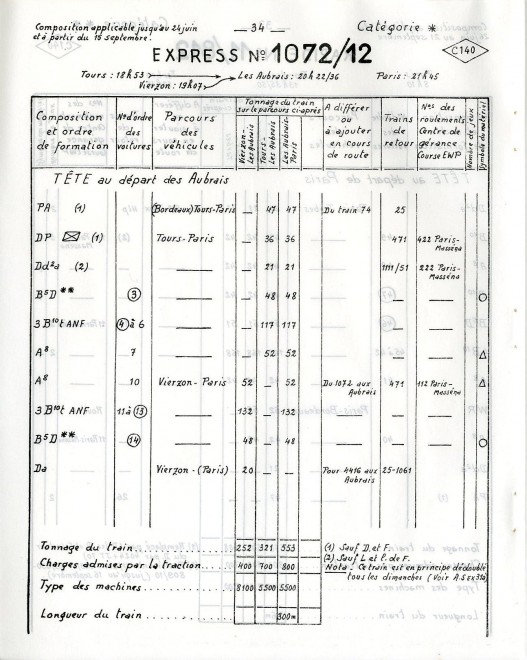 Composition applicable jusqu'au 24 juin — 34 — Catégorie *
et à partir du 15 septembre.
EXPRESS No 1072/12 C140
Tours : 18h53 → Les Aubrais : 20h22/36 Paris : 21h45
Vierzon : 19h07
Composition et ordre de formation | Nos d'ordre des voitures | Parcours des véhicules | Tonnage du train sur le parcours ci-après | A différer ou à ajouter en cours de route | Trains de retour | Nos des roulements Centre de gérance Course EWP | Nombre de feux | Symbole du matériel
Vierzon - Les Aubrais | Tours - Les Aubrais | Les Aubrais - Paris
TÊTE au départ des Aubrais
PA (1) (Bordeaux) Tours-Paris — 47 47 Du train 74 25
DP (1) Tours-Paris — 36 36 471 422 Paris-Masséna
Dd²a (2) — — 21 21 1111/51 222 Paris-Masséna
B⁵D ** 3 — — 48 48 — —
3 B¹⁰t ANF 4 à 6 — — 117 117 — —
A⁸ 7 — — 52 52 — —
A⁸ 10 Vierzon - Paris 52 — 52 Du 1072 aux Aubrais 471 112 Paris-Masséna
3 B¹⁰t ANF 11 à 13 — 132 — 132 — —
B⁵D ** 14 — 48 — 48 — —
Da Vierzon - (Paris) 20 — — Pour 4416 aux Aubrais 25-1061
Tonnage du train 252 321 553 (1) Sauf D. et F.
Charges admises par la traction 400 700 800 (2) Sauf L et l. de F.
Nota - Ce train est en principe dédoublé
Type des machines 8100 5500 5500 tous les dimanches (Voir
Longueur du train 300m